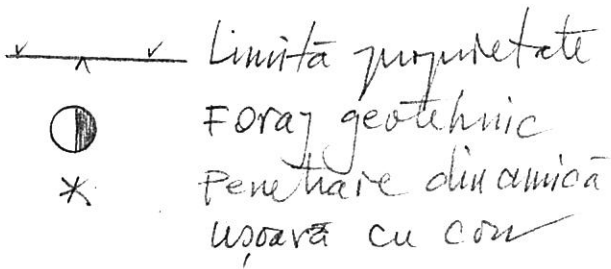 Limită proprietate
Foraj geotehnic
Penetrare dinamică
ușoară cu con